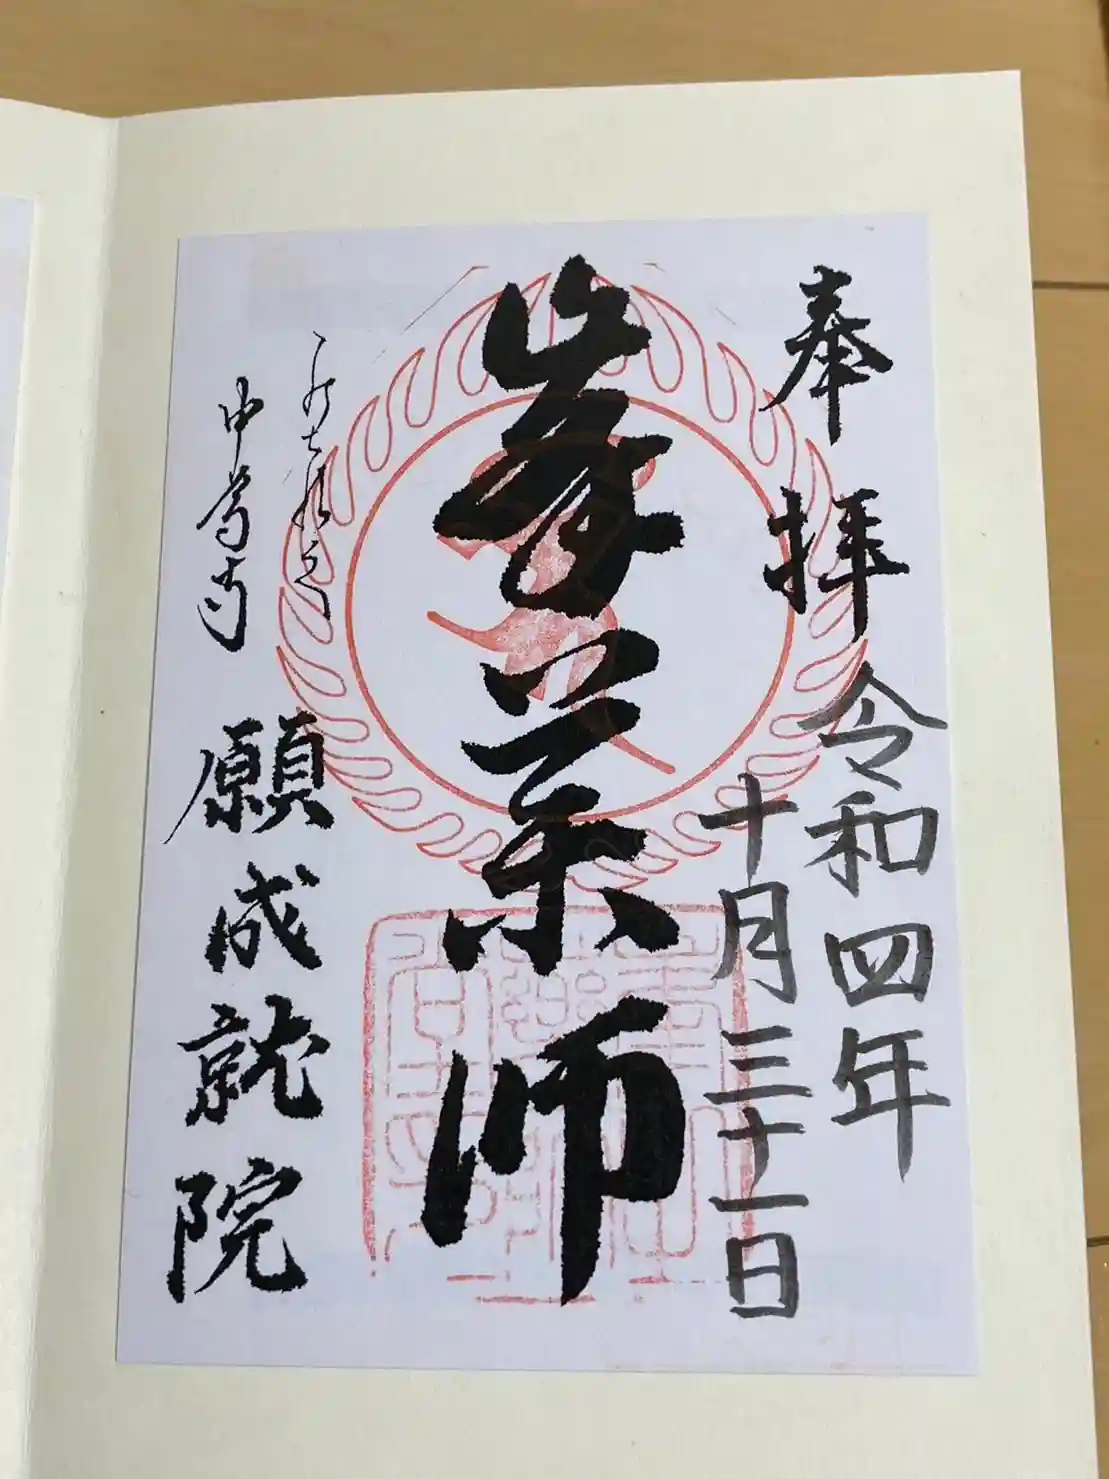 奉拝
令和四年
十月三十一日
峯薬師
中尊寺
願成就院